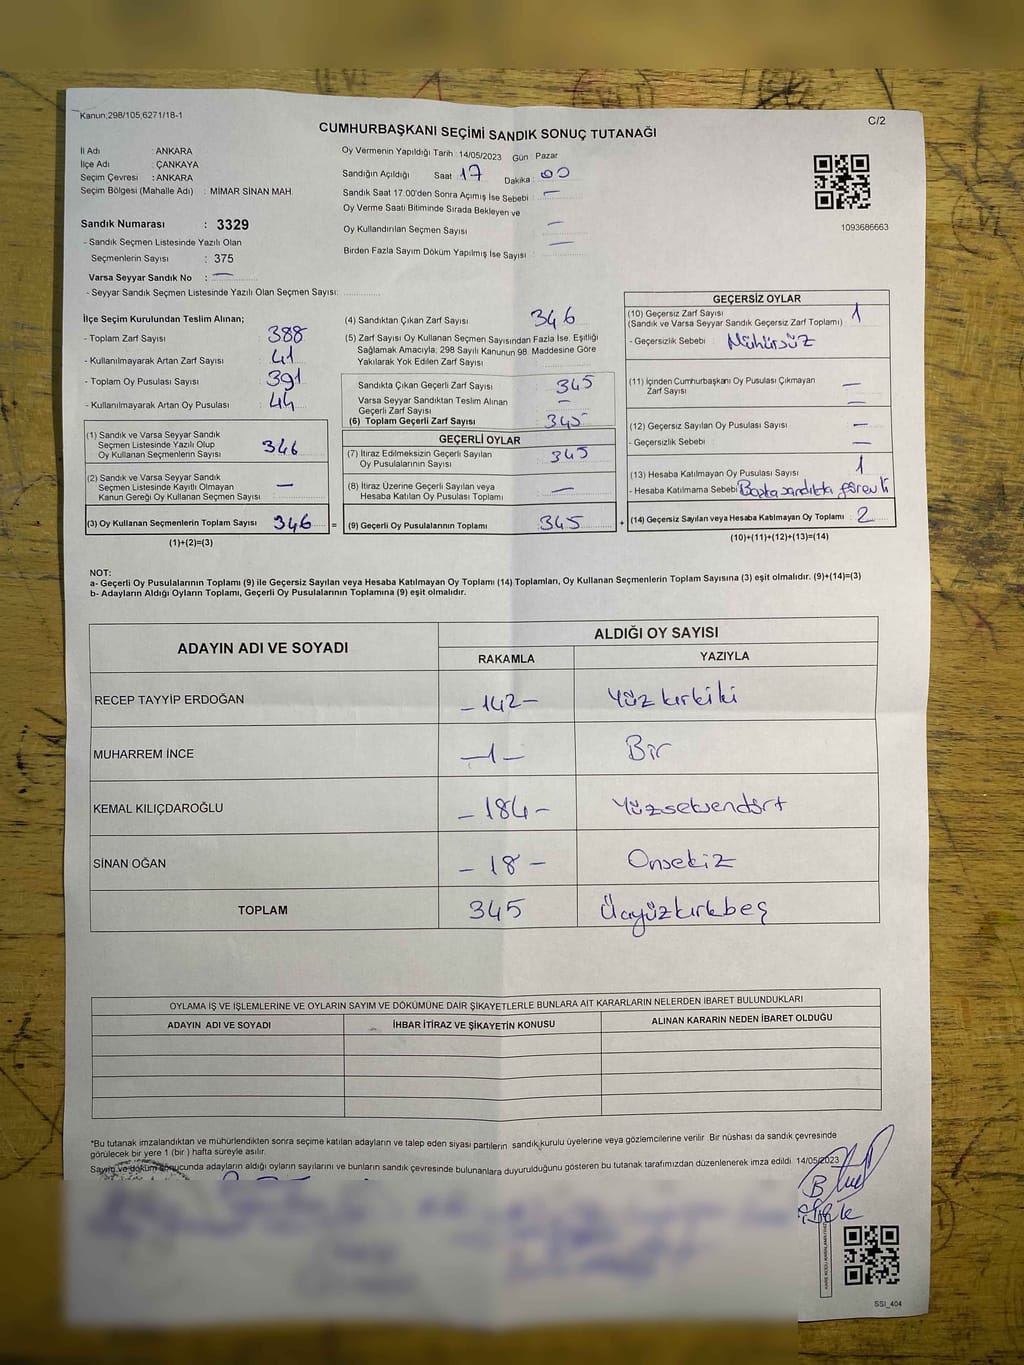 Kanun;298/105,6271/18-1
C/2
CUMHURBAŞKANI SEÇİMİ SANDIK SONUÇ TUTANAĞI
İl Adı : ANKARA
İlçe Adı : ÇANKAYA
Seçim Çevresi : ANKARA
Seçim Bölgesi (Mahalle Adı) : MİMAR SİNAN MAH.
Sandık Numarası : 3329
- Sandık Seçmen Listesinde Yazılı Olan
Seçmenlerin Sayısı : 375
Varsa Seyyar Sandık No : —
- Seyyar Sandık Seçmen Listesinde Yazılı Olan Seçmen Sayısı:
Oy Vermenin Yapıldığı Tarih : 14/05/2023 Gün Pazar
Sandığın Açıldığı Saat : 17 Dakika : 00
Sandık Saat 17:00'den Sonra Açımış İse Sebebi : —
Oy Verme Saati Bitiminde Sırada Bekleyen ve
Oy Kullandırılan Seçmen Sayısı : —
Birden Fazla Sayım Döküm Yapılmış İse Sayısı : —
1093686663
İlçe Seçim Kurulundan Teslim Alınan;
- Toplam Zarf Sayısı : 388
- Kullanılmayarak Artan Zarf Sayısı : 41
- Toplam Oy Pusulası Sayısı : 391
- Kullanılmayarak Artan Oy Pusulası : 44
(1) Sandık ve Varsa Seyyar Sandık
Seçmen Listesinde Yazılı Olup
Oy Kullanan Seçmenlerin Sayısı 346
(2) Sandık ve Varsa Seyyar Sandık
Seçmen Listesinde Kayıtlı Olmayan
Kanun Gereği Oy Kullanan Seçmen Sayısı : —
(3) Oy Kullanan Seçmenlerin Toplam Sayısı : 346 =
(1)+(2)=(3)
(4) Sandıktan Çıkan Zarf Sayısı : 346
(5) Zarf Sayısı Oy Kullanan Seçmen Sayısından Fazla İse, Eşitliği
Sağlamak Amacıyla, 298 Sayılı Kanunun 98. Maddesine Göre
Yakılarak Yok Edilen Zarf Sayısı :
Sandıkta Çıkan Geçerli Zarf Sayısı : 345
Varsa Seyyar Sandıktan Teslim Alınan
Geçerli Zarf Sayısı : —
(6) Toplam Geçerli Zarf Sayısı : 345
GEÇERLİ OYLAR
(7) İtiraz Edilmeksizin Geçerli Sayılan
Oy Pusulalarının Sayısı : 345
(8) İtiraz Üzerine Geçerli Sayılan veya
Hesaba Katılan Oy Pusulası Toplamı : —
(9) Geçerli Oy Pusulalarının Toplamı : 345 +
GEÇERSİZ OYLAR
(10) Geçersiz Zarf Sayısı
(Sandık ve Varsa Seyyar Sandık Geçersiz Zarf Toplamı) : 1
- Geçersizlik Sebebi : Mühürsüz
(11) İçinden Cumhurbaşkanı Oy Pusulası Çıkmayan
Zarf Sayısı : —
—
(12) Geçersiz Sayılan Oy Pusulası Sayısı : —
- Geçersizlik Sebebi : —
(13) Hesaba Katılmayan Oy Pusulası Sayısı : 1
- Hesaba Katılmama Sebebi : Başka sandıkta görevli
(14) Geçersiz Sayılan veya Hesaba Katılmayan Oy Toplamı : 2
(10)+(11)+(12)+(13)=(14)
NOT:
a- Geçerli Oy Pusulalarının Toplamı (9) ile Geçersiz Sayılan veya Hesaba Katılmayan Oy Toplamı (14) Toplamları, Oy Kullanan Seçmenlerin Toplam Sayısına (3) eşit olmalıdır. (9)+(14)=(3)
b- Adayların Aldığı Oyların Toplamı, Geçerli Oy Pusulalarının Toplamına (9) eşit olmalıdır.
ADAYIN ADI VE SOYADI
ALDIĞI OY SAYISI
RAKAMLA YAZIYLA
RECEP TAYYİP ERDOĞAN – 142 – Yüz kırkiki
MUHARREM İNCE – 1 – Bir
KEMAL KILIÇDAROĞLU – 184 – Yüzseksendört
SİNAN OĞAN – 18 – Onsekiz
TOPLAM 345 Üçyüzkırkbeş
OYLAMA İŞ VE İŞLEMLERİNE VE OYLARIN SAYIM VE DÖKÜMÜNE DAİR ŞİKAYETLERLE BUNLARA AİT KARARLARIN NELERDEN İBARET BULUNDUKLARI
ADAYIN ADI VE SOYADI İHBAR İTİRAZ VE ŞİKAYETİN KONUSU ALINAN KARARIN NEDEN İBARET OLDUĞU
*Bu tutanak imzalandıktan ve mühürlendikten sonra seçime katılan adayların ve talep eden siyasi partilerin sandık kurulu üyelerine veya gözlemcilerine verilir. Bir nüshası da sandık çevresinde
görülecek bir yere 1 (bir ) hafta süreyle asılır.
Sayım ve döküm sonucunda adayların aldığı oyların sayılarını ve bunların sandık çevresinde bulunanlara duyurulduğunu gösteren bu tutanak tarafımızdan düzenlenerek imza edildi. 14/05/2023
SSI_404